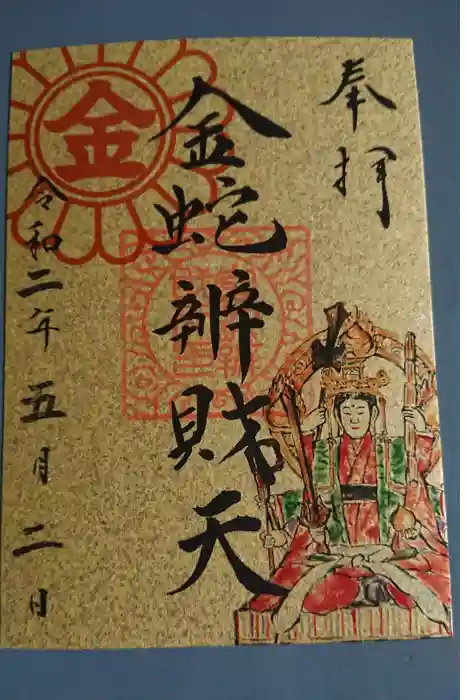 奉拝
金蛇辨財天
令和二年五月二日
金